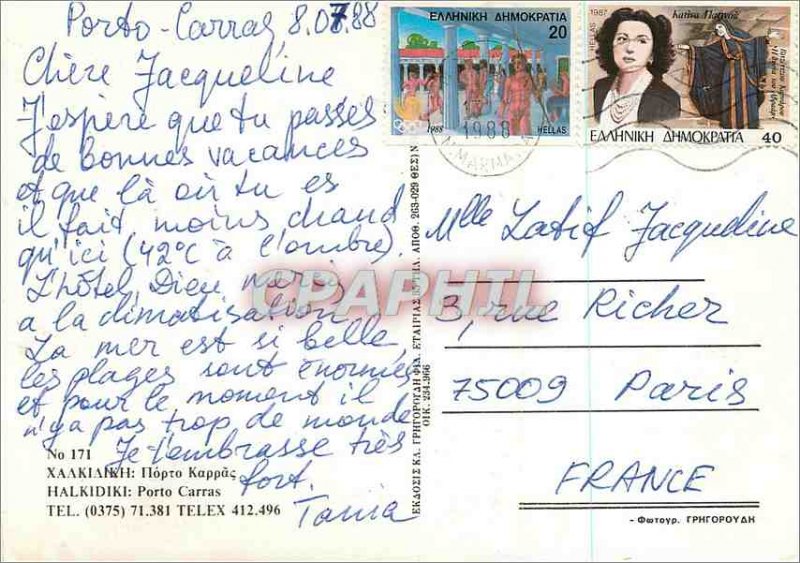 Porto-Carras 8.07.88
Chère Jacqueline
J'espère que tu passes
de bonnes vacances
et que là où tu es
il fait moins chaud
qu'ici (42°C à l'ombre).
L'hôtel, Dieu merci,
a la climatisation.
La mer est si belle,
les plages sont énormes
et pour le moment il
n'y a pas trop de monde
Je t'embrasse très
fort.
Tania
No 171
ΧΑΛΚΙΔΙΚΗ: Πόρτο Καρράς
HALKIDIKI: Porto Carras
TEL. (0375) 71.381 TELEX 412.496
ΕΚΔΟΣΙΣ ΚΛ. ΓΡΗΓΟΡΟΥΔΗ ΦΙΛ. ΕΤΑΙΡΙΑΣ ΑΠΟΘ. 263-029 ΘΕΣ/Ν
ΟΙΚ. 234.966
ΕΛΛΗΝΙΚΗ ΔΗΜΟΚΡΑΤΙΑ
20
1988
HELLAS
1988
1987
HELLAS
Κατίνα Παξινού
ΕΛΛΗΝΙΚΗ ΔΗΜΟΚΡΑΤΙΑ 40
Mlle Latif Jacqueline
3, rue Richer
75009 Paris
FRANCE
- Φωτογρ. ΓΡΗΓΟΡΟΥΔΗ
CPAPHIL